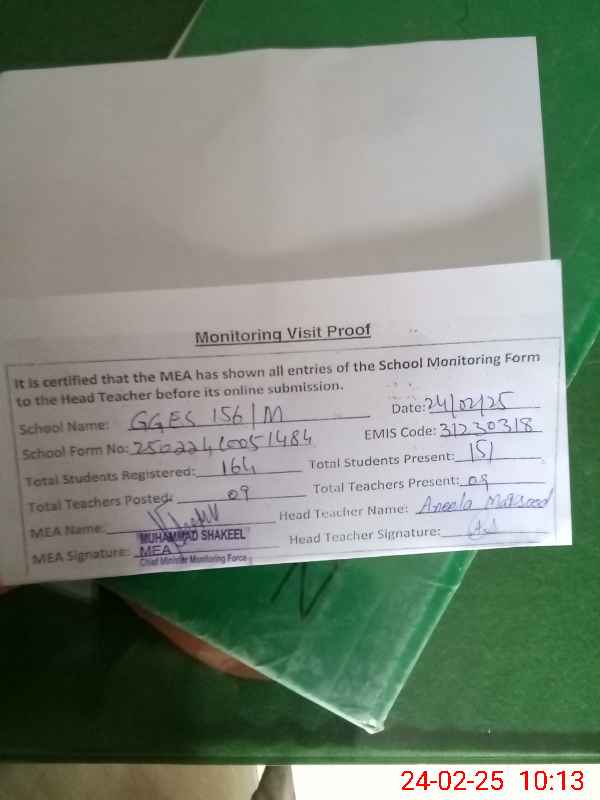 Monitoring Visit Proof
It is certified that the MEA has shown all entries of the School Monitoring Form
to the Head Teacher before its online submission.
School Name: GGES 156/M Date: 24/02/25
School Form No: 25022460051484 EMIS Code: 31230318
Total Students Registered: 164 Total Students Present: 151
Total Teachers Posted: 09 Total Teachers Present: 09
MEA Name: Head Teacher Name: Aneela Maqsood
MUHAMMAD SHAKEEL
MEA Signature: MEA Head Teacher Signature:
Chief Minister Monitoring Force
24-02-25 10:13